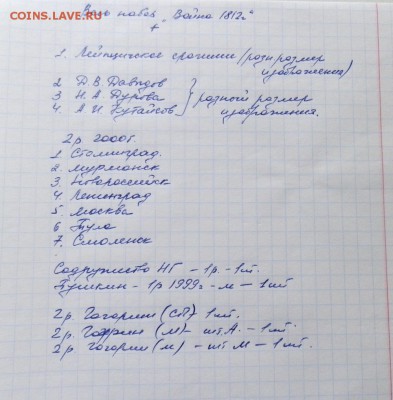 COINS.LAVE.RU
Весь набор "Война 1812г"
+
1. Лейпцигское сражение (разн размер
изображения)
2 Д.В. Давыдов
3 Н.А. Дурова
4 А.И Кутайсов
разный размер
изображения.
2р 2000г.
1 Сталинград.
2. Мурманск
3. Новороссийск
4. Ленинград
5. Москва
6 Тула
7. Смоленск
Содружество НГ - 1р. - 1шт.
Пушкин - 1р 1999г - м - 1шт
2р. Гагарин (СП) 1шт.
2р. Гагрин (м) - шт. А. - 1шт.
2р Гагарин (м) - шт. М - 1шт.